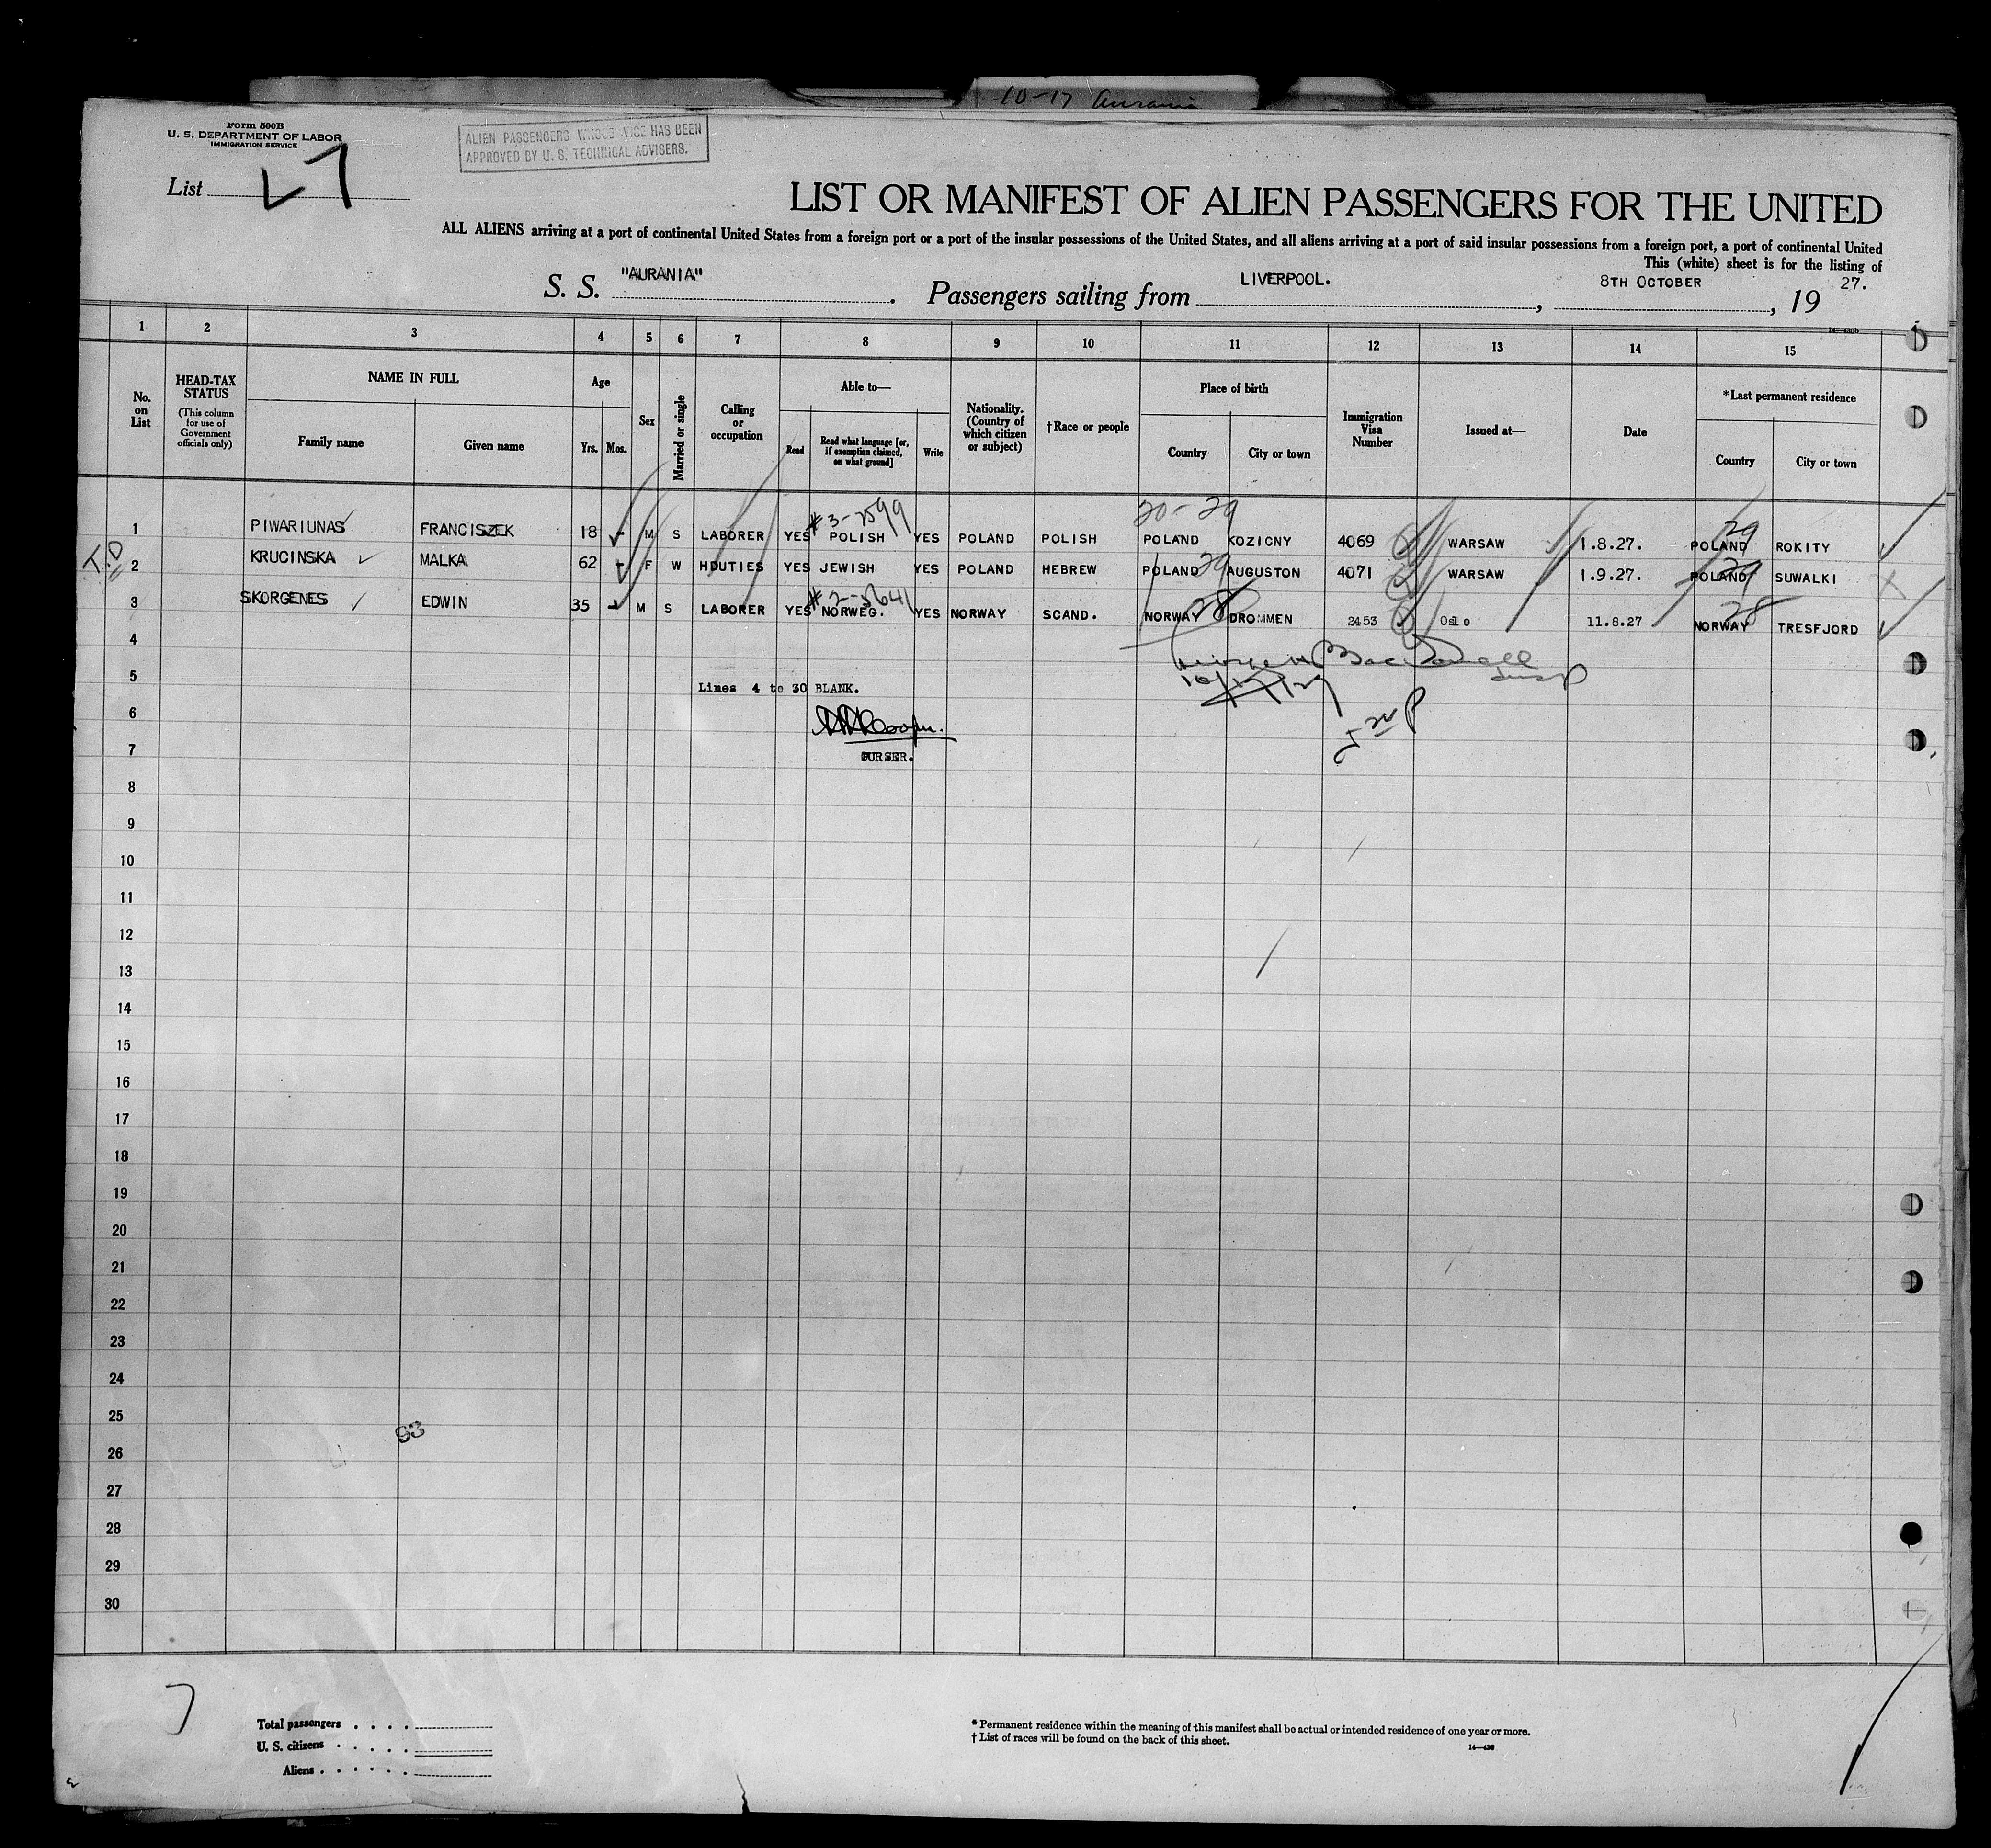 10-17 Aurania
Form 500B
U. S. DEPARTMENT OF LABOR
IMMIGRATION SERVICE
ALIEN PASSENGERS WHOSE VISE HAS BEEN
APPROVED BY U. S. TECHNICAL ADVISERS.
List 7
LIST OR MANIFEST OF ALIEN PASSENGERS FOR THE UNITED
ALL ALIENS arriving at a port of continental United States from a foreign port or a port of the insular possessions of the United States, and all aliens arriving at a port of said insular possessions from a foreign port, a port of continental United
This (white) sheet is for the listing of
S. S. "AURANIA". Passengers sailing from LIVERPOOL., 8TH OCTOBER, 19 27.
1 2 3 4 5 6 7 8 9 10 11 12 13 14 15
No. on List
HEAD-TAX STATUS (This column for use of Government officials only)
NAME IN FULL
Family name Given name
Age
Yrs. Mos.
Sex
Married or single
Calling or occupation
Able to—
Read Read what language [or, if exemption claimed, on what ground] Write
Nationality. (Country of which citizen or subject)
†Race or people
Place of birth
Country City or town
Immigration Visa Number
Issued at—
Date
*Last permanent residence
Country City or town
#3-2599 20-29 29
1 PIWARIUNAS FRANCISZEK 18 - M S LABORER YES POLISH YES POLAND POLISH POLAND KOZICNY 4069 WARSAW 1.8.27. POLAND ROKITY
T.D 29 29
2 KRUCINSKA MALKA 62 - F W HDUTIES YES JEWISH YES POLAND HEBREW POLAND AUGUSTON 4071 WARSAW 1.9.27. POLAND SUWALKI
#2-5641 28 28
3 SKORGENES EDWIN 35 - M S LABORER YES NORWEG. YES NORWAY SCAND. NORWAY DROMMEN 2453 Oslo 11.8.27 NORWAY TRESFJORD
4
5
Lines 4 to 30 BLANK.
10/17/27
6
PURSER.
7
8
9
10
11
12
13
14
15
16
17
18
19
20
21
22
23
24
25
93
26
27
28
29
30
7
Total passengers . . . .
U. S. citizens . . . . .
Aliens . . . . . .
* Permanent residence within the meaning of this manifest shall be actual or intended residence of one year or more.
† List of races will be found on the back of this sheet.